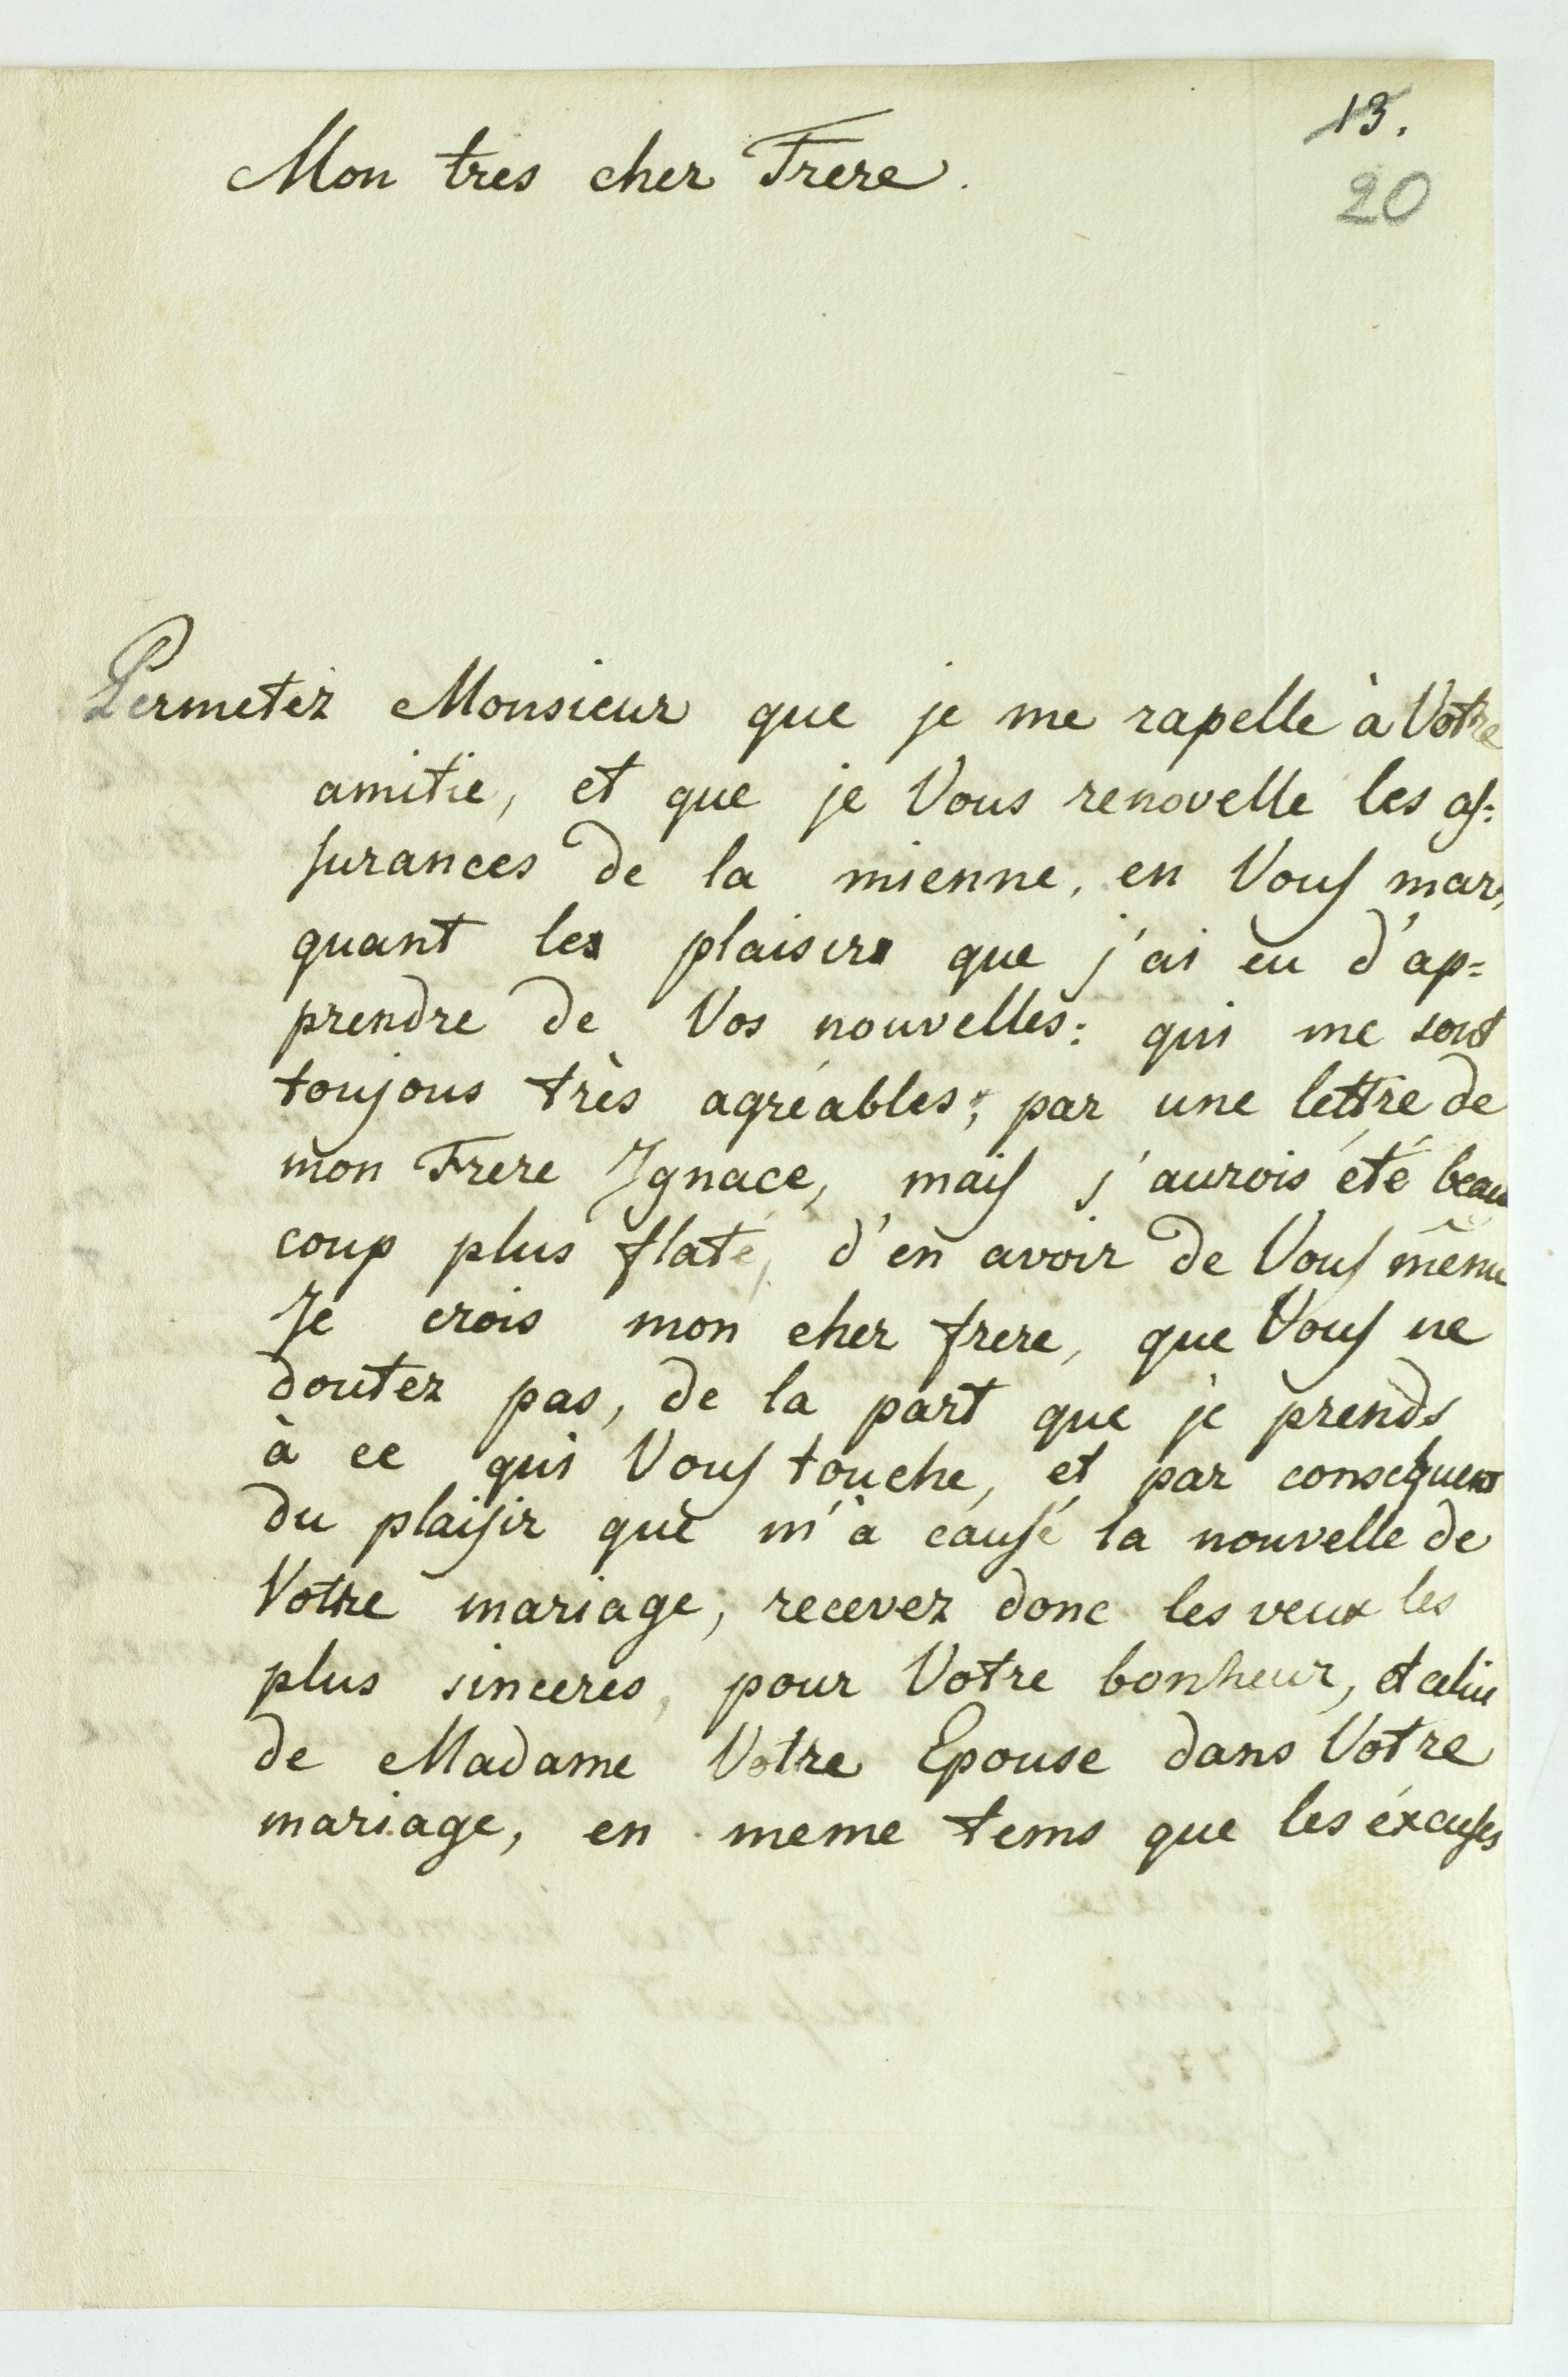 13.
20
Mon tres cher Frere.
Permetez Monsieur que je me rapelle à Votre
amitie, et que je Vous renovelle les as=
surances de la mienne, en Vous mar,
quant les plaisirs que j'ai eu d'ap=
prendre de Vos nouvelles: qui me sont
toujous très agréables; par une lettre de
mon Frere Ignace, mais j'aurois été beau
coup plus flaté, d'en avoir de Vous même
Je crois mon cher frere, que Vous ne
doutez pas, de la part que je prends
à ce qui Vous touche, et par consequent
du plaisir que m'a causé la nouvelle de
Votre mariage; recevez donc les veux les
plus sinceres, pour Votre bonheur, et celui
de Madame Votre Epouse dans Votre
mariage, en meme tems que les éxcuses